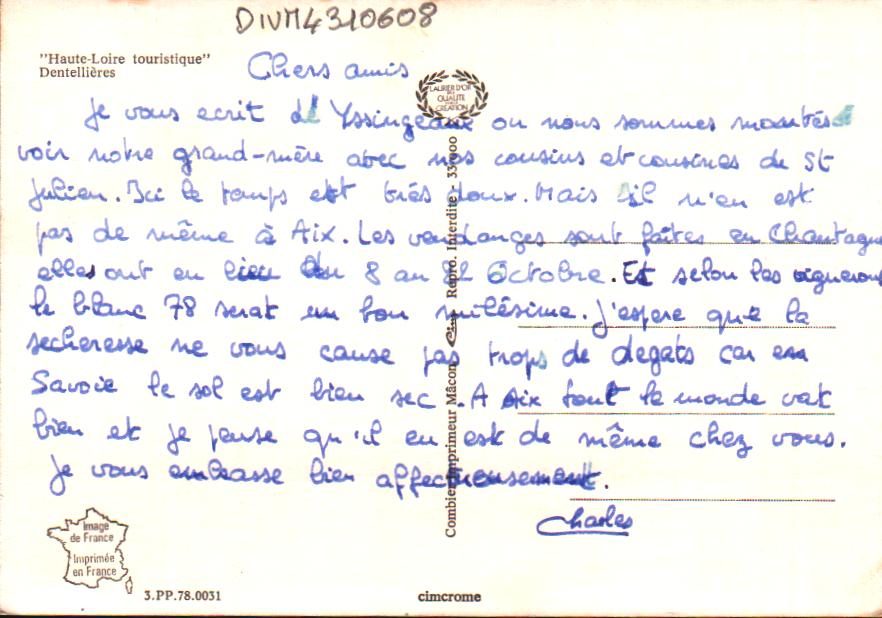 DIVM4310608
"Haute-Loire touristique"
Dentellières
Chers amis
LAURIER D'OR
DE LA
QUALITÉ
CRÉATION
Je vous ecrit d' Yssingeaux ou nous sommes montés
voir notre grand-mère avec nos cousins et cousines de St
Julien. Ici le temps est très doux. Mais il n'en est
pas de même à Aix. Les vendanges sont faites en Chautagne
elles ont eu lieu du 8 au 22 Octobre. Et selon les vignerons
le blanc 78 serat un bon milésime. J'espere que la
secheresse ne vous cause pas trops de degats car en
Savoie le sol est bien sec. A Aix tout le monde vat
bien et je pense qu'il en est de même chez vous.
Je vous embrasse bien affectueusement.
Charles
Combier Imprimeur Mâcon Cim Repro. Interdite - 33.000
Image
de France
Imprimée
en France
3.PP.78.0031
cimcrome